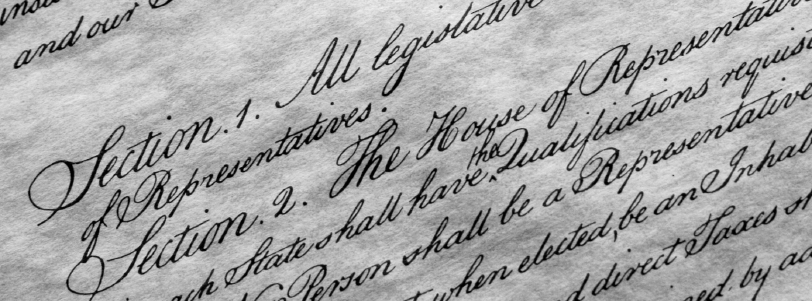 insu
and our
Section. 1. All legislative
of Representatives.
Section. 2. The House of Representative
ach State shall have the Qualifications requisit
Person shall be a Representative
when elected, be an Inhab
d direct Taxes sh
ned by ad